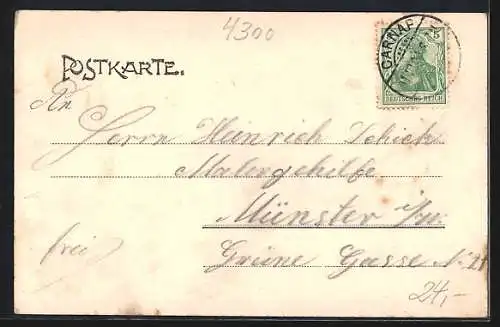 4300
CARNAP
5
DEUTSCHES REICH
POSTKARTE.
An
Herrn Heinrich Schick
Malergehilfe
Münster i/w.
frei
Grüne Gasse N. 21
24,-